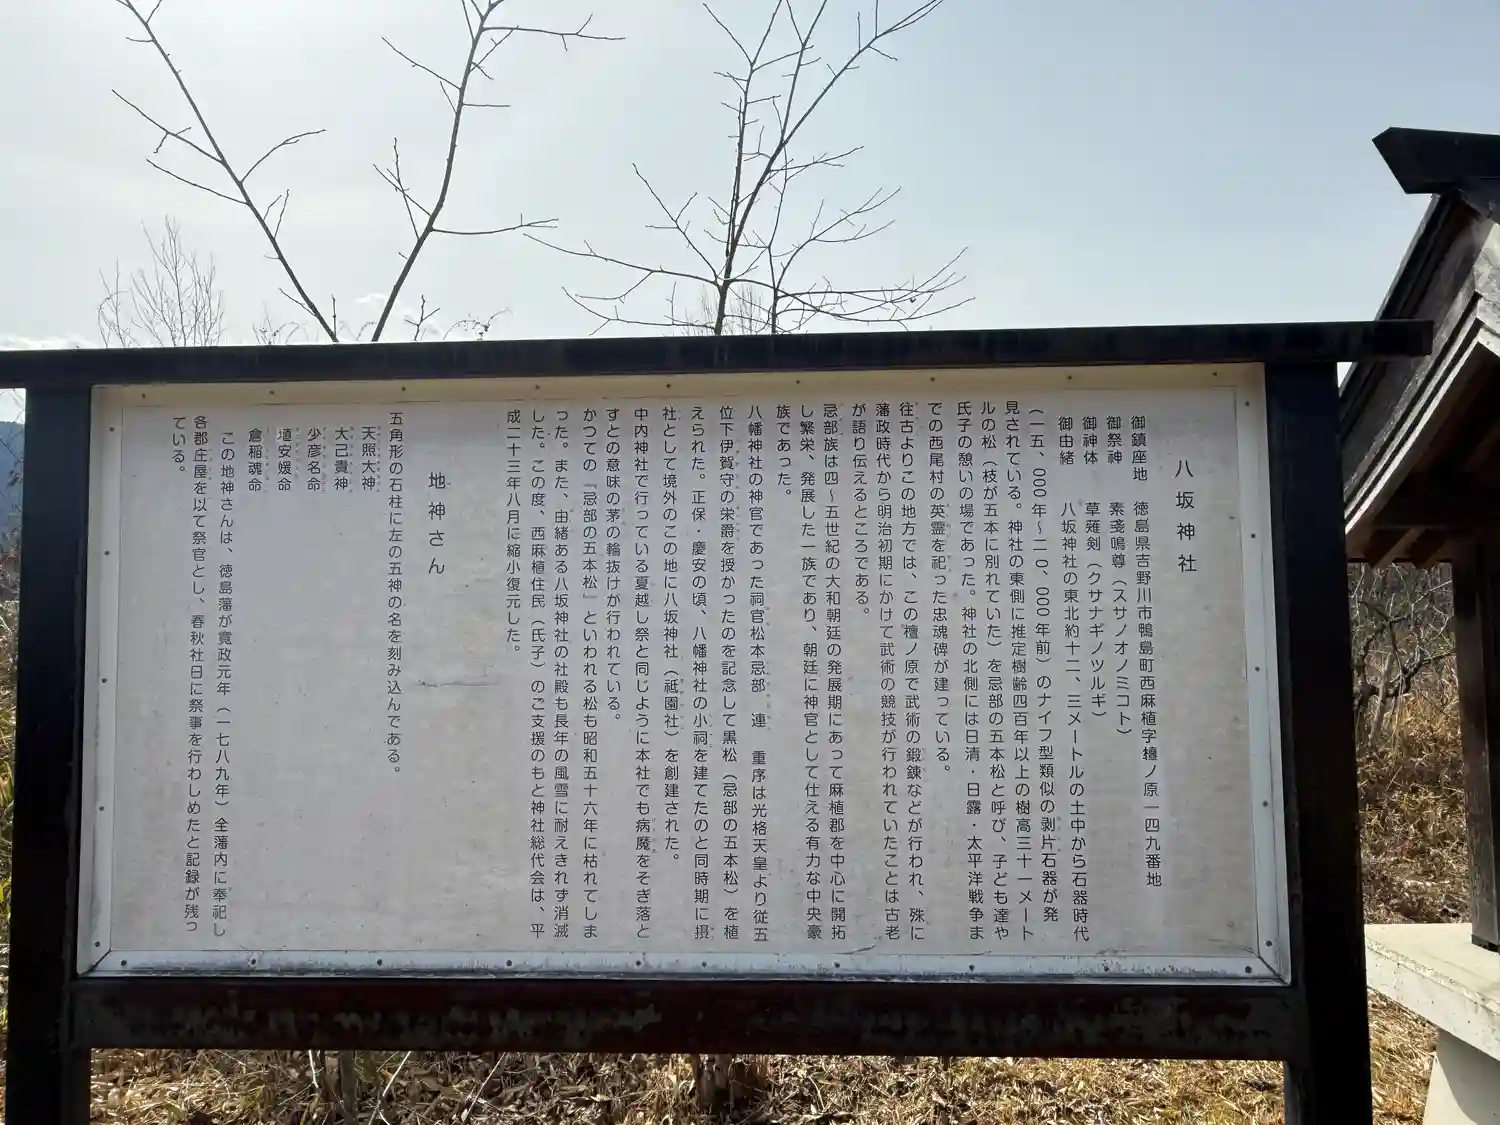 八坂神社
御鎮座地　徳島県吉野川市鴨島町西麻植字檀ノ原一四九番地
御祭神　素戔嗚尊（スサノオノミコト）
御神体　草薙剣（クサナギノツルギ）
御由緒　八坂神社の東北約十二、三メートルの土中から石器時代
（一五、000年～二0、000年前）のナイフ型類似の剥片石器が発
見されている。神社の東側に推定樹齢四百年以上の樹高三十一メート
ルの松（枝が五本に別れていた）を忌部の五本松と呼び、子ども達や
氏子の憩いの場であった。神社の北側には日清・日露・太平洋戦争ま
での西尾村の英霊を祀った忠魂碑が建っている。
往古よりこの地方では、この檀ノ原で武術の鍛錬などが行われ、殊に
藩政時代から明治初期にかけて武術の競技が行われていたことは古老
が語り伝えるところである。
忌部族は四～五世紀の大和朝廷の発展期にあって麻植郡を中心に開拓
し繁栄、発展した一族であり、朝廷に神官として仕える有力な中央豪
族であった。
八幡神社の神官であった祠官松本忌部　連　重序は光格天皇より従五
位下伊賀守の栄爵を授かったのを記念して黒松（忌部の五本松）を植
えられた。正保・慶安の頃、八幡神社の小祠を建てたのと同時期に摂
社として境外のこの地に八坂神社（祇園社）を創建された。
中内神社で行っている夏越し祭と同じように本社でも病魔をそぎ落と
すとの意味の茅の輪抜けが行われている。
かつての『忌部の五本松』といわれる松も昭和五十六年に枯れてしま
った。また、由緒ある八坂神社の社殿も長年の風雪に耐えきれず消滅
した。この度、西麻植住民（氏子）のご支援のもと神社総代会は、平
成二十三年八月に縮小復元した。
地神さん
五角形の石柱に左の五神の名を刻み込んである。
天照大神
大己貴神
少彦名命
埴安媛命
倉稲魂命
この地神さんは、徳島藩が寛政元年（一七八九年）全藩内に奉祀し
各郡庄屋を以て祭官とし、春秋社日に祭事を行わしめたと記録が残っ
ている。